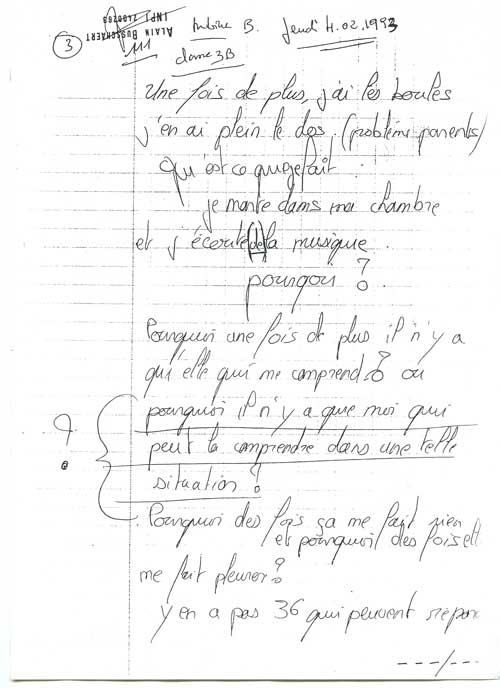 3
ALAIN BUSSCHAERT
INPI 2400268
Antoine B. Jeudi 4.02.1993
classe 3B
Une fois de plus, j'ai les boules
j'en ai plein le dos. (problème parents)
Qu'est ce que je fait :
je monte dans ma chambre
et j'écoute de la musique.
pourquoi ?
Pourquoi une fois de plus il n'y a
qu'elle qui me comprend ? ou
? pourquoi il n'y a que moi qui
peut la comprendre dans une telle
situation ?
Pourquoi des fois ça me fait rien
et pourquoi des fois ell
me fait pleurer ?
y en a pas 36 qui peuvent répon
---/---